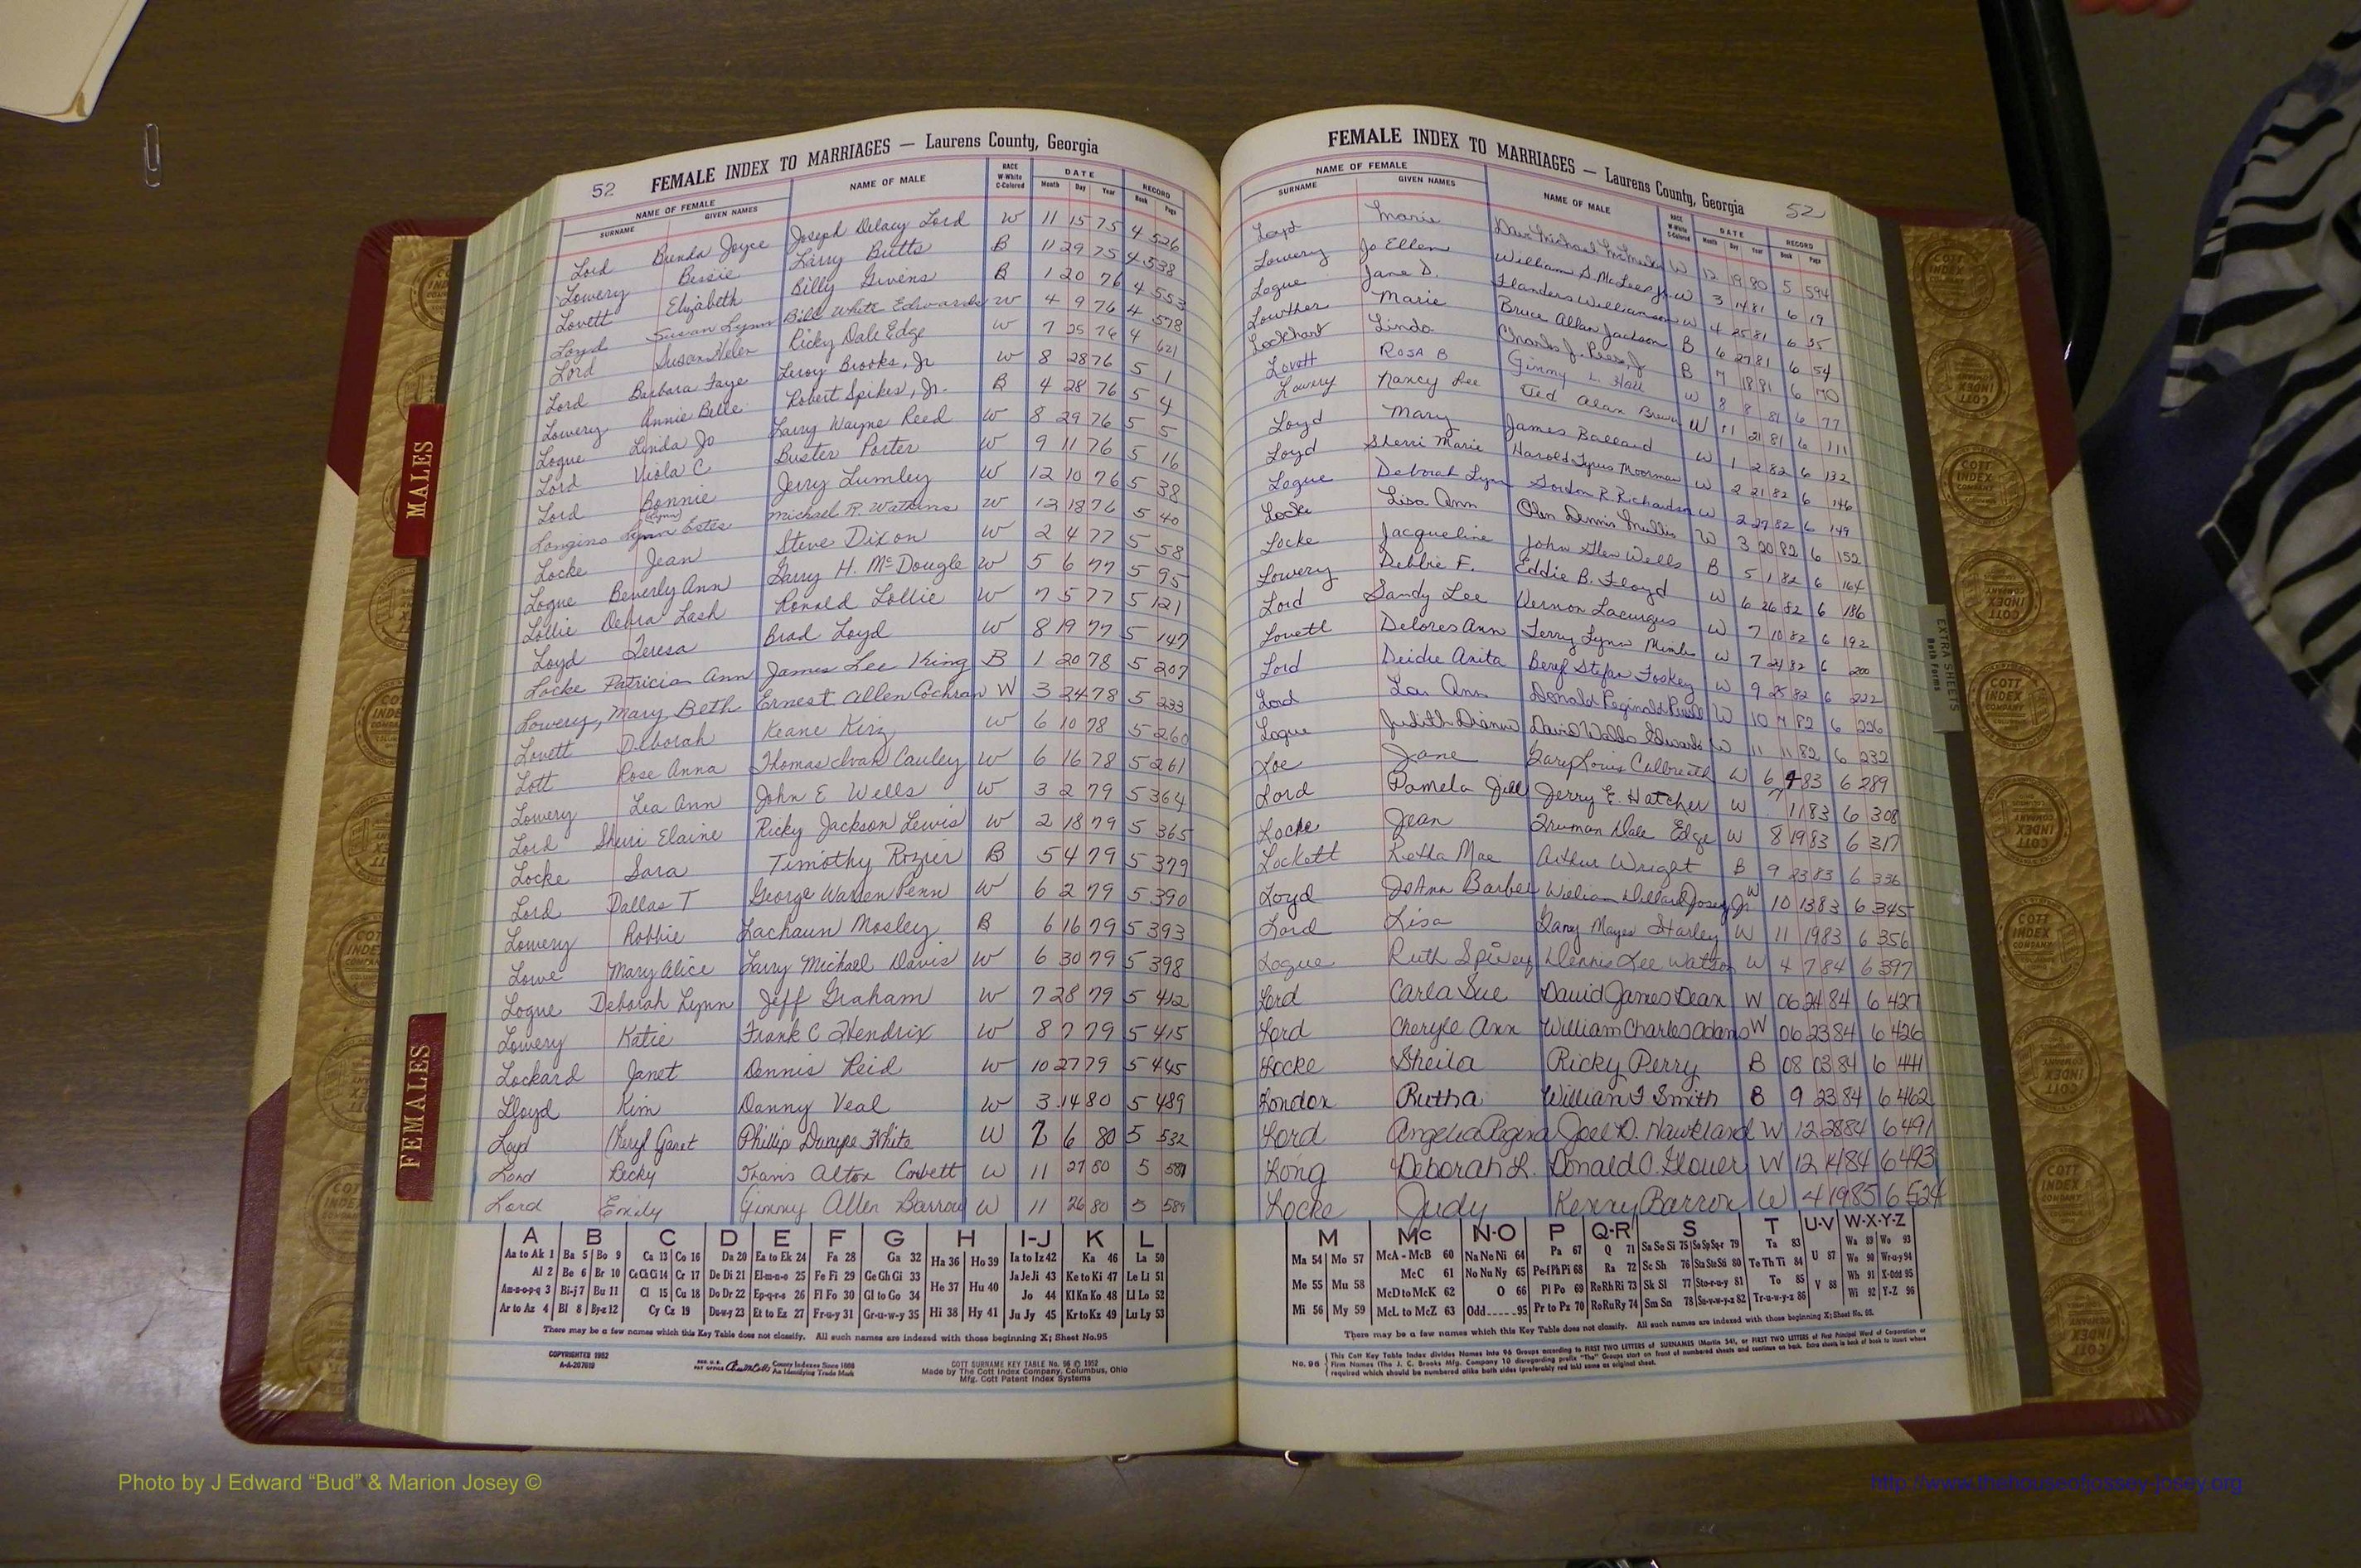 52 FEMALE INDEX TO MARRIAGES — Laurens County, Georgia
NAME OF FEMALE NAME OF MALE RACE W-White C-Colored DATE RECORD
SURNAME GIVEN NAMES Month Day Year Book Page
Lord Brenda Joyce Joseph Delacy Lord W 11 15 75 4 526
Lowery Bessie Larry Butts B 11 29 75 4 538
Lovett Elizabeth Billy Givens B 1 20 76 4 553
Loyd Susan Lynn Bill White Edwards W 4 9 76 4 578
Lord Susan Helen Ricky Dale Edge W 7 25 76 4 621
Lord Barbara Faye Leroy Brooks, Jr W 8 28 76 5 1
Lowery Annie Belle Robert Spikes, Jr. B 4 28 76 5 4
Logue Linda Jo Larry Wayne Reed W 8 29 76 5 5
Lord Viola C Buster Porter W 9 11 76 5 16
Lord Bonnie Jerry Lumley W 12 10 76 5 38
(Lynn)
Longino Lynn Estes Michael R. Watkins W 12 18 76 5 40
Locke Jean Steve Dixon W 2 4 77 5 58
Logue Beverly Ann Garry H. McDougle W 5 6 77 5 95
Lollie Debra Lash Ronald Lollie W 7 5 77 5 121
Loyd Teresa Brad Loyd W 8 19 77 5 147
Locke Patricia Ann James Lee King B 1 20 78 5 207
Lowery, Mary Beth Ernest Allen Cochran W 3 24 78 5 233
Lovett Deborah Keane Kirz W 6 10 78 5 260
Lott Rose Anna Thomas Ivah Cauley W 6 16 78 5 261
Lowery Lea Ann John E Wells W 3 2 79 5 364
Lord Sheri Elaine Ricky Jackson Lewis W 2 18 79 5 365
Locke Sara Timothy Rozier B 5 4 79 5 379
Lord Dallas T George Warren Penn W 6 2 79 5 390
Lowery Robbie Lachaun Mosley B 6 16 79 5 393
Lowe Mary Alice Larry Michael Davis W 6 30 79 5 398
Logue Deborah Lynn Jeff Graham W 7 28 79 5 412
Lowery Katie Frank C Hendrix W 8 7 79 5 415
Lockard Janet Dennis Reid W 10 27 79 5 445
Lloyd Kim Danny Veal W 3 14 80 5 489
Loyd Cheryl Ganet Phillip Dwayne White W 7 6 80 5 532
Lord Becky Travis Alton Corbett W 11 27 80 5 587
Lord Emily Jimmy Allen Barron W 11 26 80 5 589
A B C D E F G H I-J K L
Aa to Ak 1 Ba 5 Bo 9 Ca 13 Co 16 Da 20 Ea to Ek 24 Fa 28 Ga 32 Ha 36 Ho 39 Ia to Iz 42 Ka 46 La 50
Al 2 Be 6 Br 10 Ce Ch Ci 14 Cr 17 De Di 21 El-m-n-o 25 Fe Fi 29 Ge Gh Gi 33 He 37 Hu 40 Ja Je Ji 43 Ke to Ki 47 Le Li 51
Am-n-o-p-q 3 Bi-j 7 Bu 11 Cl 15 Cu 18 Do Dr 22 Ep-q-r-s 26 Fl Fo 30 Gl to Go 34 Jo 44 Kl Kn Ko 48 Ll Lo 52
Ar to Az 4 Bl 8 By-z 12 Cy Cz 19 Du-w-y 23 Et to Ez 27 Fr-u-y 31 Gr-u-w-y 35 Hi 38 Hy 41 Ju Jy 45 Kr to Kz 49 Lu Ly 53
There may be a few names which this Key Table does not classify. All such names are indexed with those beginning X; Sheet No.95
COPYRIGHTED 1952
A-A-207619
County Indexes Since 1888
An Identifying Trade Mark
COTT SURNAME KEY TABLE No. 96 © 1952
Made by The Cott Index Company, Columbus, Ohio
Mfg. Cott Patent Index Systems
FEMALE INDEX TO MARRIAGES — Laurens County, Georgia 52
NAME OF FEMALE NAME OF MALE RACE W-White C-Colored DATE RECORD
SURNAME GIVEN NAMES Month Day Year Book Page
Loyd Marie Michael W 12 19 80 5 594
Lowery Jo Ellen William S. McLees Jr. W 3 14 81 6 19
Logue Jane D. Flanders Williamson W 4 25 81 6 35
Lowther Marie Bruce Allan Jackson B 6 27 81 6 54
Lockhart Linda Charles J. B 7 18 81 6 70
Lovett Rosa B Gimmy L. Hall W 8 8 81 6 77
Lowery Nancy Lee Ted Alan Brown W 11 21 81 6 111
Loyd Mary James Ballard W 1 2 82 6 132
Loyd Sherri Marie Harold Tyrus Moorman W 2 21 82 6 146
Logue Deborah Lynn Gordon R. Richardson W 2 27 82 6 149
Locke Lisa Ann Olen Dennis Mullis W 3 20 82 6 152
Locke Jacqueline John Glen Wells B 5 1 82 6 164
Lowery Debbie F. Eddie B. Floyd W 6 26 82 6 186
Lord Sandy Lee Vernon Lacurgus W 7 10 82 6 192
Lovett Delores Ann Terry Lynn Mimbs W 7 24 82 6 200
Lord Deidre Anita Beryl Stefan Foskey W 9 25 82 6 222
Lord Lou Ann Donald Reginald W 10 7 82 6 226
Logue Judith Dianne David Waldo Edwards W 11 11 82 6 232
Loe Jane Gary Louis Culbreth W 6 4 83 6 289
Lord Pamela Jill Jerry E. Hatcher W 7 11 83 6 308
Locke Jean Truman Dale Edge W 8 19 83 6 317
Lockett Retha Mae Arthur Wright B 9 23 83 6 336
Loyd JoAnn Barber William Dillard Josey Jr W 10 13 83 6 345
Lord Lisa Dany Mayes Starley W 11 19 83 6 356
Logue Ruth Spivey Dennis Lee Watson W 4 7 84 6 397
Lord Carla Sue David James Dean W 06 24 84 6 427
Lord Cheryle Ann William Charles Adams W 06 23 84 6 426
Locke Sheila Ricky Perry B 08 03 84 6 441
London Rutha William J Smith B 9 23 84 6 462
Lord Angelia Regina Joel D. Hawkland W 12 28 84 6 491
Long Deborah L. Donald O. Glover W 12 14 84 6 493
Locke Judy Kenny Barron W 4 19 85 6 524
M Mc N-O P Q-R S T U-V W-X-Y-Z
Ma 54 Mo 57 McA - McB 60 Na Ne Ni 64 Pa 67 Q 71 Sa Se Si 75 So Sp Sq-r 79 Ta 83 U 87 Wa 89 Wo 93
Me 55 Mu 58 McC 61 No Nu Ny 65 Pe-f Ph Pi 68 Ra 72 Sc Sh 76 Sta Ste Sti 80 Te Th Ti 84 We 90 Wr-u-y 94
McD to McK 62 O 66 Pl Po 69 Re Rh Ri 73 Sk Sl 77 Sto-r-u-y 81 To 85 V 88 Wh 91 X-Odd 95
Mi 56 My 59 McL to McZ 63 Odd 95 Pr to Pz 70 Ro Ru Ry 74 Sm Sn 78 Su-v-w-y-z 82 Tr-u-w-y-z 86 Wi 92 Y-Z 96
There may be a few names which this Key Table does not classify. All such names are indexed with those beginning X; Sheet No. 95.
No. 96
This Cott Key Table Index divides Names into 96 Groups according to FIRST TWO LETTERS of SURNAMES (Martin 54), or FIRST TWO LETTERS of First Principal Word of Corporation or
Firm Names (The J. C. Brooks Mfg. Company 10 disregarding prefix "The") Groups start on front of numbered sheets and continue on back. Extra sheets
required which should be numbered alike both sides (preferably red ink) same as original sheet.
MALES
FEMALES
EXTRA SHEETS
Both Forms
COTT INDEX COMPANY
Photo by J Edward “Bud” & Marion Josey ©
http://www.thehouseofjossey-josey.org